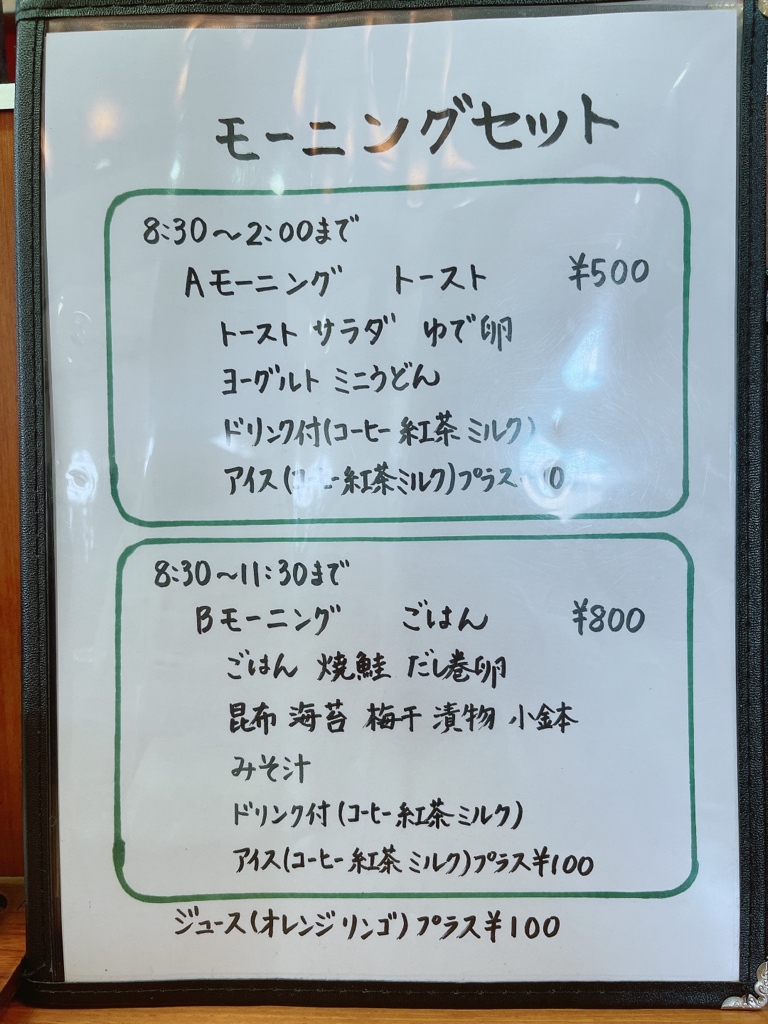 モーニングセット
8:30〜2:00まで
Aモーニング トースト ¥500
トースト サラダ ゆで卵
ヨーグルト ミニうどん
ドリンク付(コーヒー 紅茶 ミルク)
アイス(コーヒー 紅茶 ミルク)プラス
8:30〜11:30まで
Bモーニング ごはん ¥800
ごはん 焼鮭 だし巻卵
昆布 海苔 梅干 漬物 小鉢
みそ汁
ドリンク付(コーヒー 紅茶 ミルク)
アイス(コーヒー 紅茶 ミルク)プラス¥100
ジュース(オレンジ リンゴ)プラス¥100